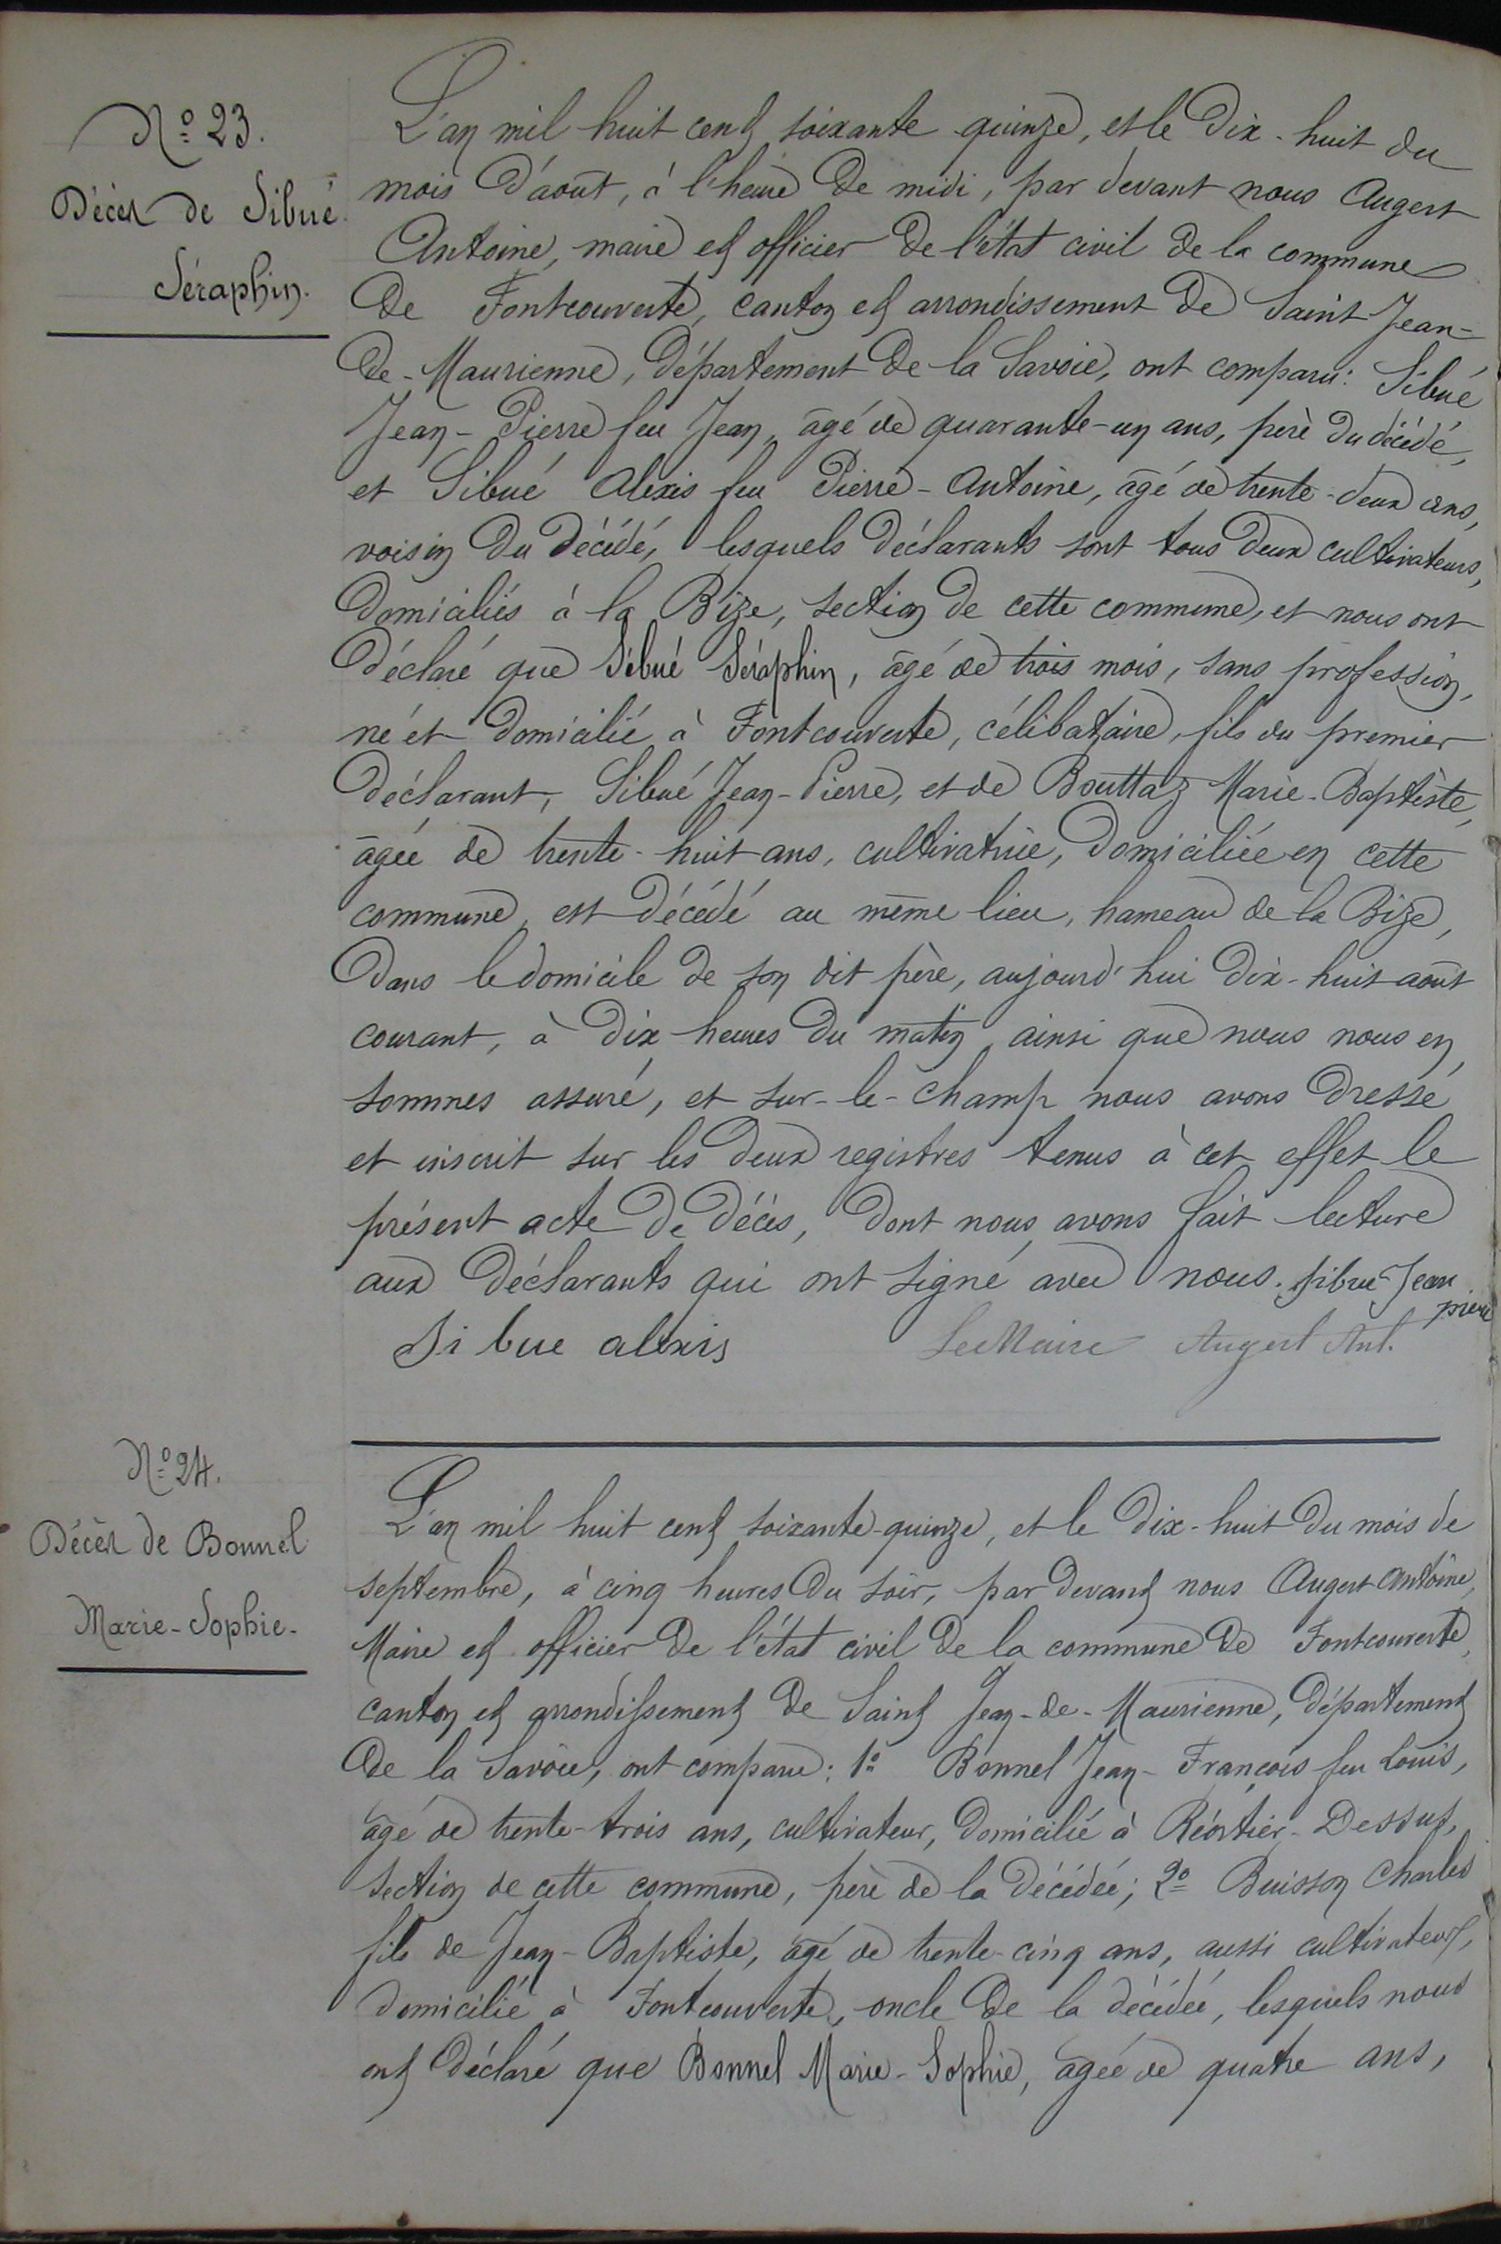 N° 23.
Décès de Sibué
Séraphin.
L'an mil huit cent soixante quinze, et le dix-huit du
mois d'août, à l'heure de midi, par devant nous Augert
Antoine, maire et officier de l'état civil de la commune
de Fontcouverte, canton et arrondissement de Saint-Jean-
de-Maurienne, département de la Savoie, ont comparu: Sibué
Jean-Pierre feu Jean, âgé de quarante-un ans, père du décédé,
et Sibué Alexis feu Pierre-Antoine, âgé de trente-deux ans,
voisin du décédé, lesquels déclarants sont tous deux cultivateurs,
domiciliés à la Bize, section de cette commune, et nous ont
déclaré que Sibué Séraphin, âgé de trois mois, sans profession,
né et domicilié à Fontcouverte, célibataire, fils du premier
déclarant, Sibué Jean-Pierre, et de Bouttaz Marie-Baptiste,
âgée de trente-huit ans, cultivatrice, domiciliée en cette
commune, est décédé au même lieu, hameau de la Bize,
dans le domicile de son dit père, aujourd'hui dix-huit août
courant, à dix heures du matin, ainsi que nous nous en
sommes assuré, et sur-le-champ nous avons dressé
et inscrit sur les deux registres tenus à cet effet le
présent acte de décès, dont nous avons fait lecture
aux déclarants qui ont signé avec nous. sibue Jean
pierre
Si bue alexis Le Maire Augert Ant.
N° 24.
Décès de Bonnel
Marie-Sophie-
L'an mil huit cent soixante-quinze, et le dix-huit du mois de
septembre, à cinq heures du soir, par devant nous Augert Antoine,
Maire et officier de l'état civil de la commune de Fontcouverte,
canton et arrondissement de Saint Jean-de-Maurienne, département
de la Savoie, ont comparu: 1° Bonnel Jean-François feu Louis,
âgé de trente-trois ans, cultivateur, domicilié à Réortier-Dessus,
section de cette commune, père de la décédée; 2° Buisson Charles
fils de Jean-Baptiste, âgé de trente-cinq ans, aussi cultivateur,
domicilié à Fontcouverte, oncle de la décédée, lesquels nous
ont déclaré que Bonnel Marie-Sophie, âgée de quatre ans,